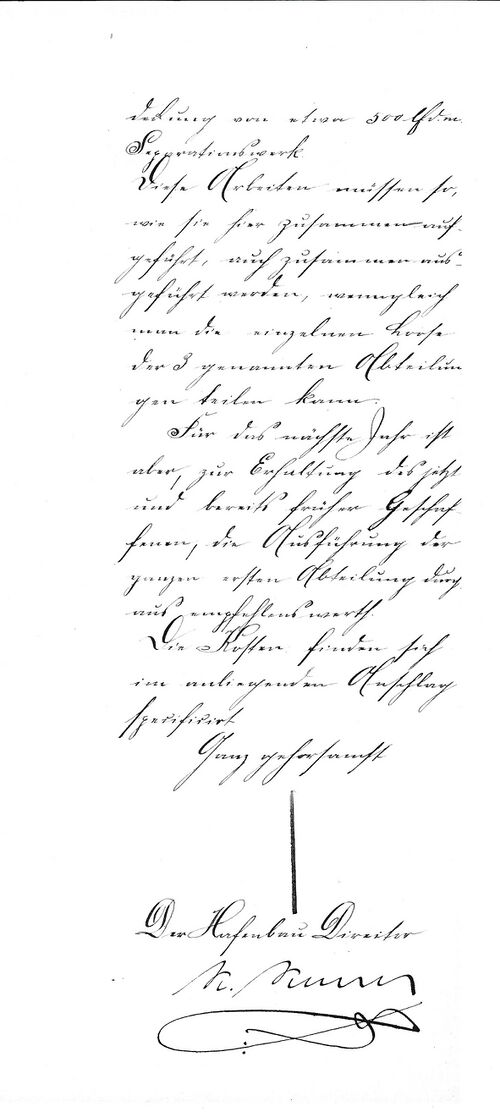 deckung von etwa 300 lfd. m.
Separationswerk
Diese Arbeiten müssen so,
wie sie hier zusammen auf-
geführt, auch zusammen aus-
geführt werden, wenngleich
man die einzelnen Loose
der 3 genannten Abteilun
gen teilen kann.
Für das nächste Jahr ist
aber, zur Erhaltung des jetzt
und bereits früher Geschaf
fenen, die Ausführung der
ganzen ersten Abteilung durch
aus empfehlenswerth.
Die Kosten finden sich
im anliegenden Anschlag
specificirt
Ganz gehorsamst
Der Hafenbau Director